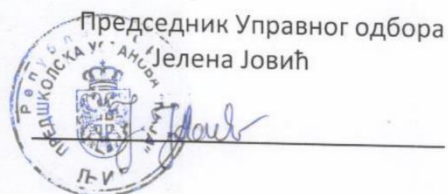 Председник Управног одбора
Јелена Јовић
Република
ПРЕДШКОЛСКА УСТАНОВА